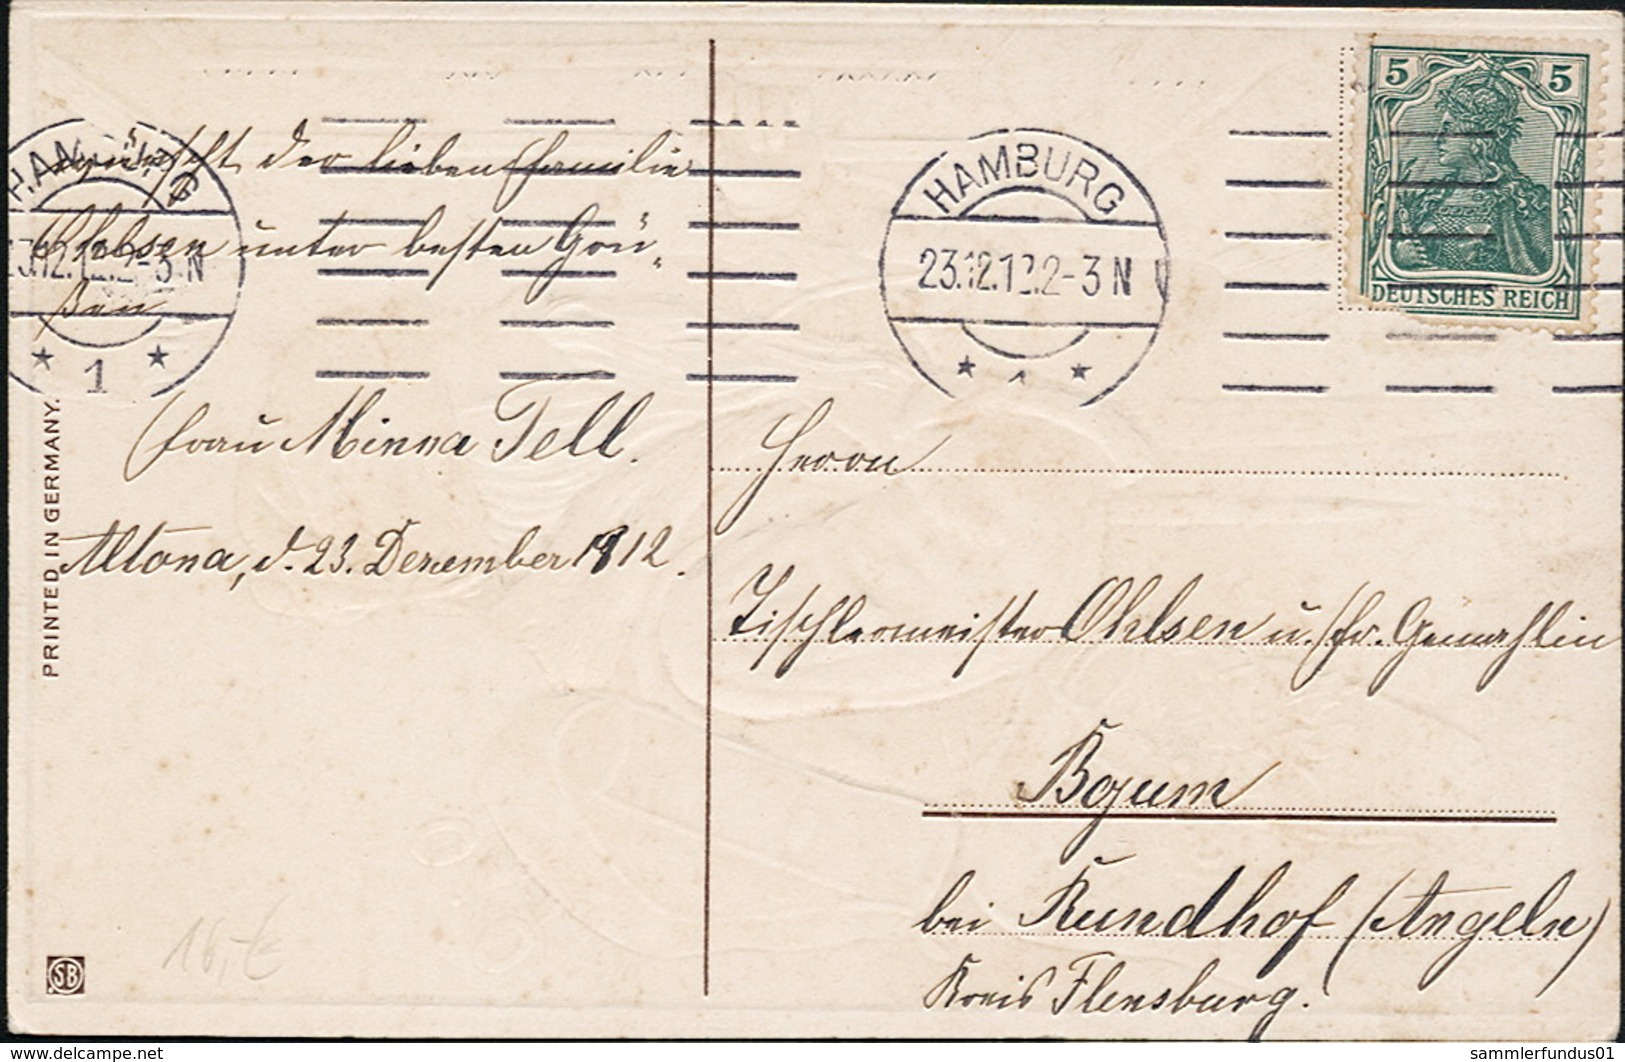 wünscht der lieben Familie
Ohlsen unter besten Grü-
ßen
Frau Minna Tell.
Altona, d. 23. Dezember 1912.
PRINTED IN GERMANY.
SB
16,-€
HAMBURG
23.12.12.2-3 N
* 1 *
HAMBURG
23.12.12.2-3 N
* 1 *
5 5
DEUTSCHES REICH
Herrn
Tischlermeister Ohlsen u. Fr. Gemahlin
Bojum
bei Rundhof (Angeln)
Kreis Flensburg.
www.delcampe.net
sammlerfundus01